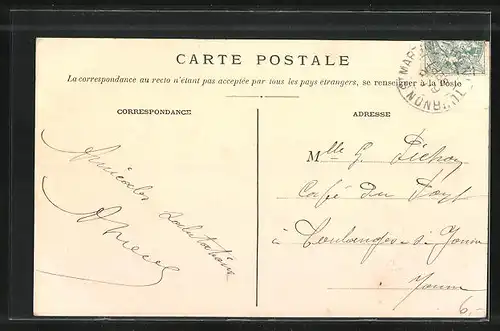 CARTE POSTALE
La correspondance au recto n'étant pas acceptée par tous les pays étrangers, se renseigner à la Poste
CORRESPONDANCE
ADRESSE
Amicales salutations
Mlle G.
Café du
à Coulanges-s-Yonne
Yonne
6,-